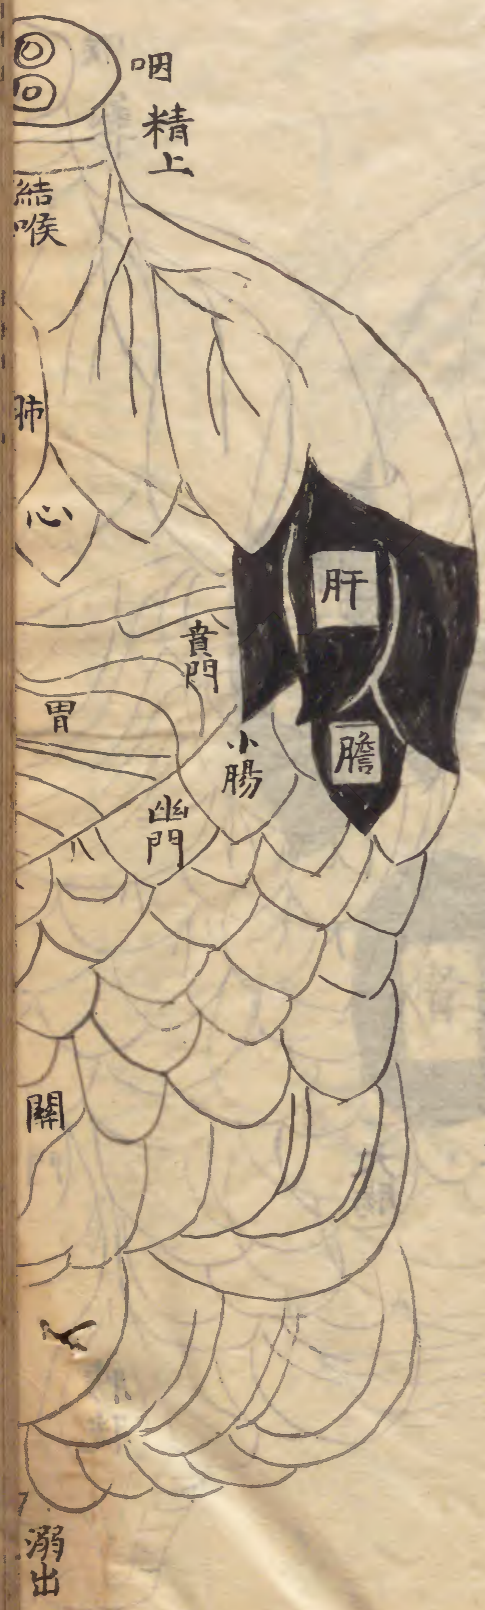 咽
精上
結喉
肺
心
肝
賁門
胃
膽
小腸
幽門
關
溺出